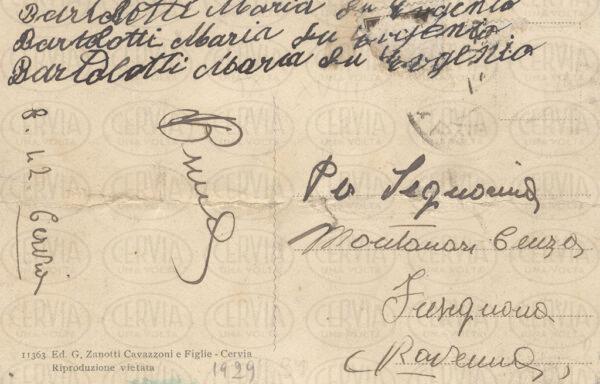 Bartolotti Maria fu Eugenio
Bartolotti Maria fu Eugenio
Bartolotti Maria fu Eugenio
8. 42. Cervia
Pr Signorina
Montanari Cenza
Fusignana
(Ravenna)
11363 Ed. G. Zanotti Cavazzoni e Figlie - Cervia
Riproduzione vietata
1929
CERVIA
UNA VOLTA